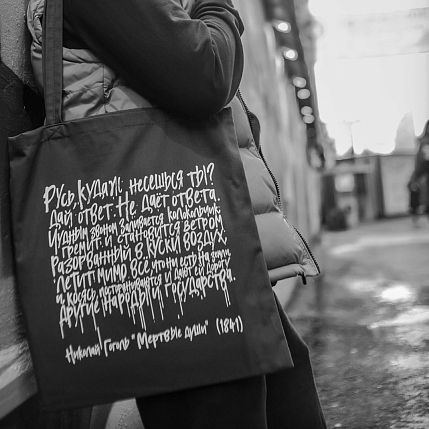 Русь, куда ж несешься ты?
Дай ответ. Не даёт ответа.
Чудным звоном заливается колокольчик;
гремит и становится ветром
разорванный в куски воздух;
летит мимо всё, что ни есть на земли,
и, косясь, постораниваются и дают ей дорогу
другие народы и государства.
Николай Гоголь "Мертвые души" (1841)